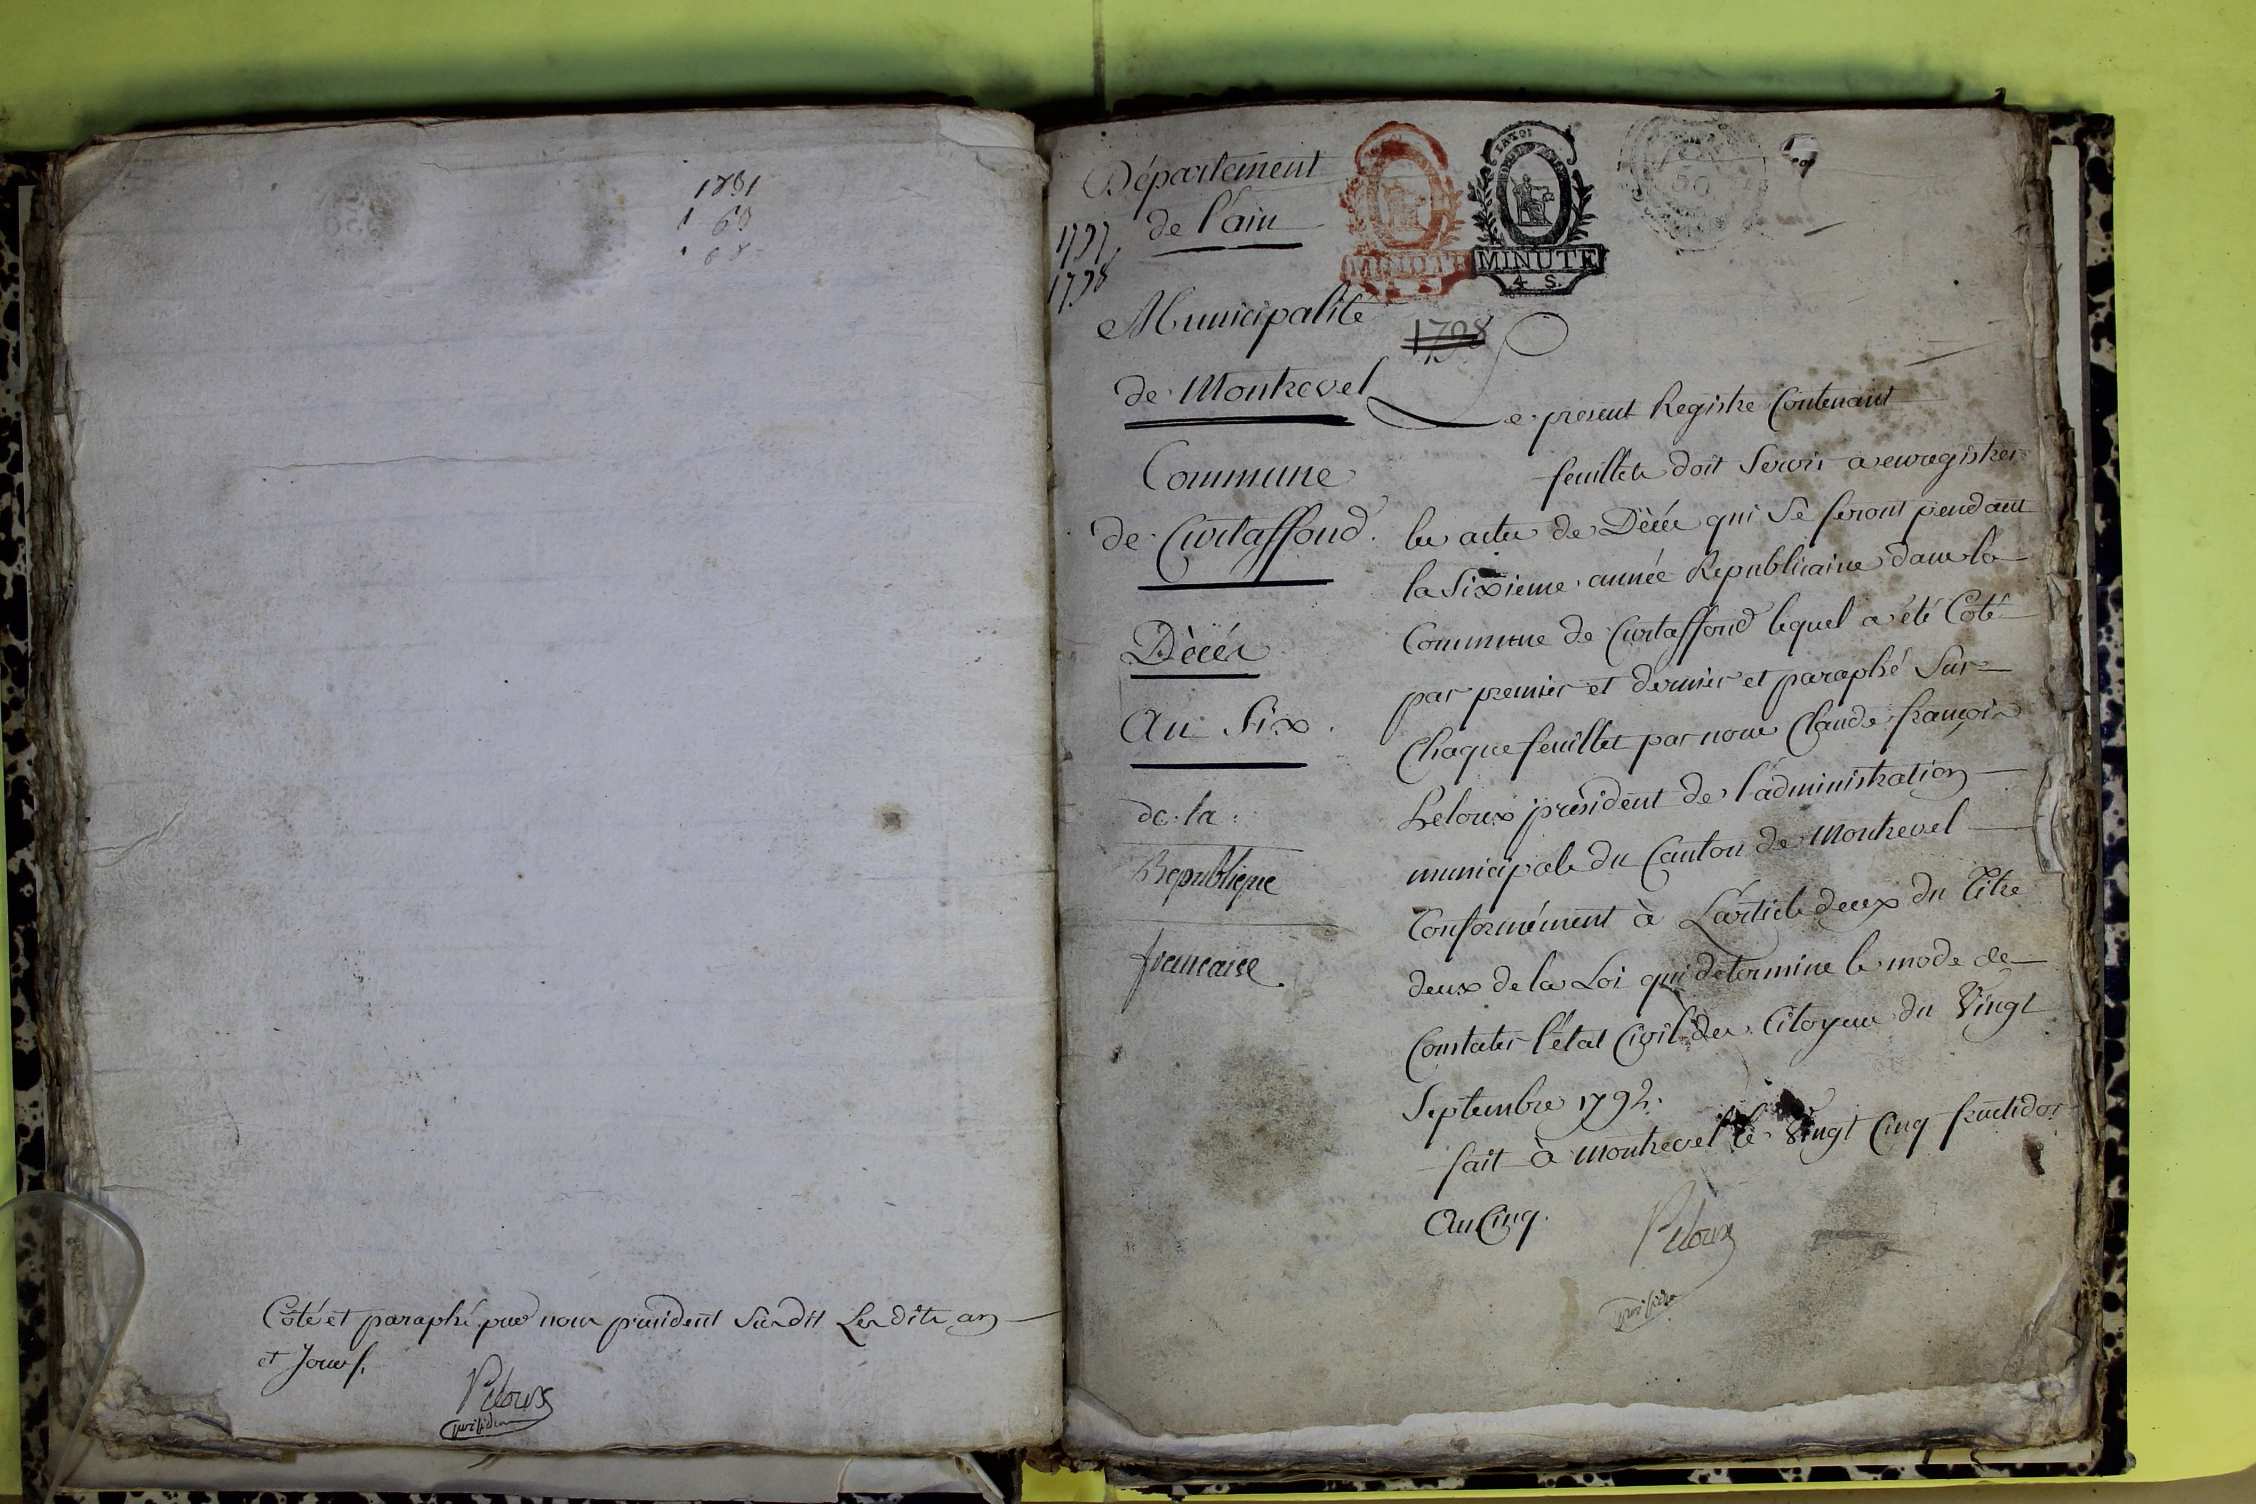 1781
60
68
Côté et paraphé par nous président susdit Lesdits an
et Jours.
Peloux
président
Département
de l'ain
1797
1798
Municipalité
de Montrevel
Commune
de Curtaffond.
Décés
An Six.
de la
Republique
francaise
LA LOI
MINUTE
MINUTE
4 S.
50
1798
Le present Registre Contenant
feuillets doit Servir a enregistrer
les actes de Décés qui Se feront pendant
la Sixieme année Republicaine dans la
Commune de Curtaffond lequel a été Côté
par premier et dernier et paraphé Sur
Chaque feuillet par nous Claude françois
Peloux président de l'administration
municipale du Canton de Montrevel
Conformément à L'article deux du Titre
deux de la Loi qui determine le mode de
Constater l'état Civil des Citoyens du Vingt
Septembre 1792.
fait à Montrevel le Vingt Cinq fructidor
An Cinq.
Peloux
président